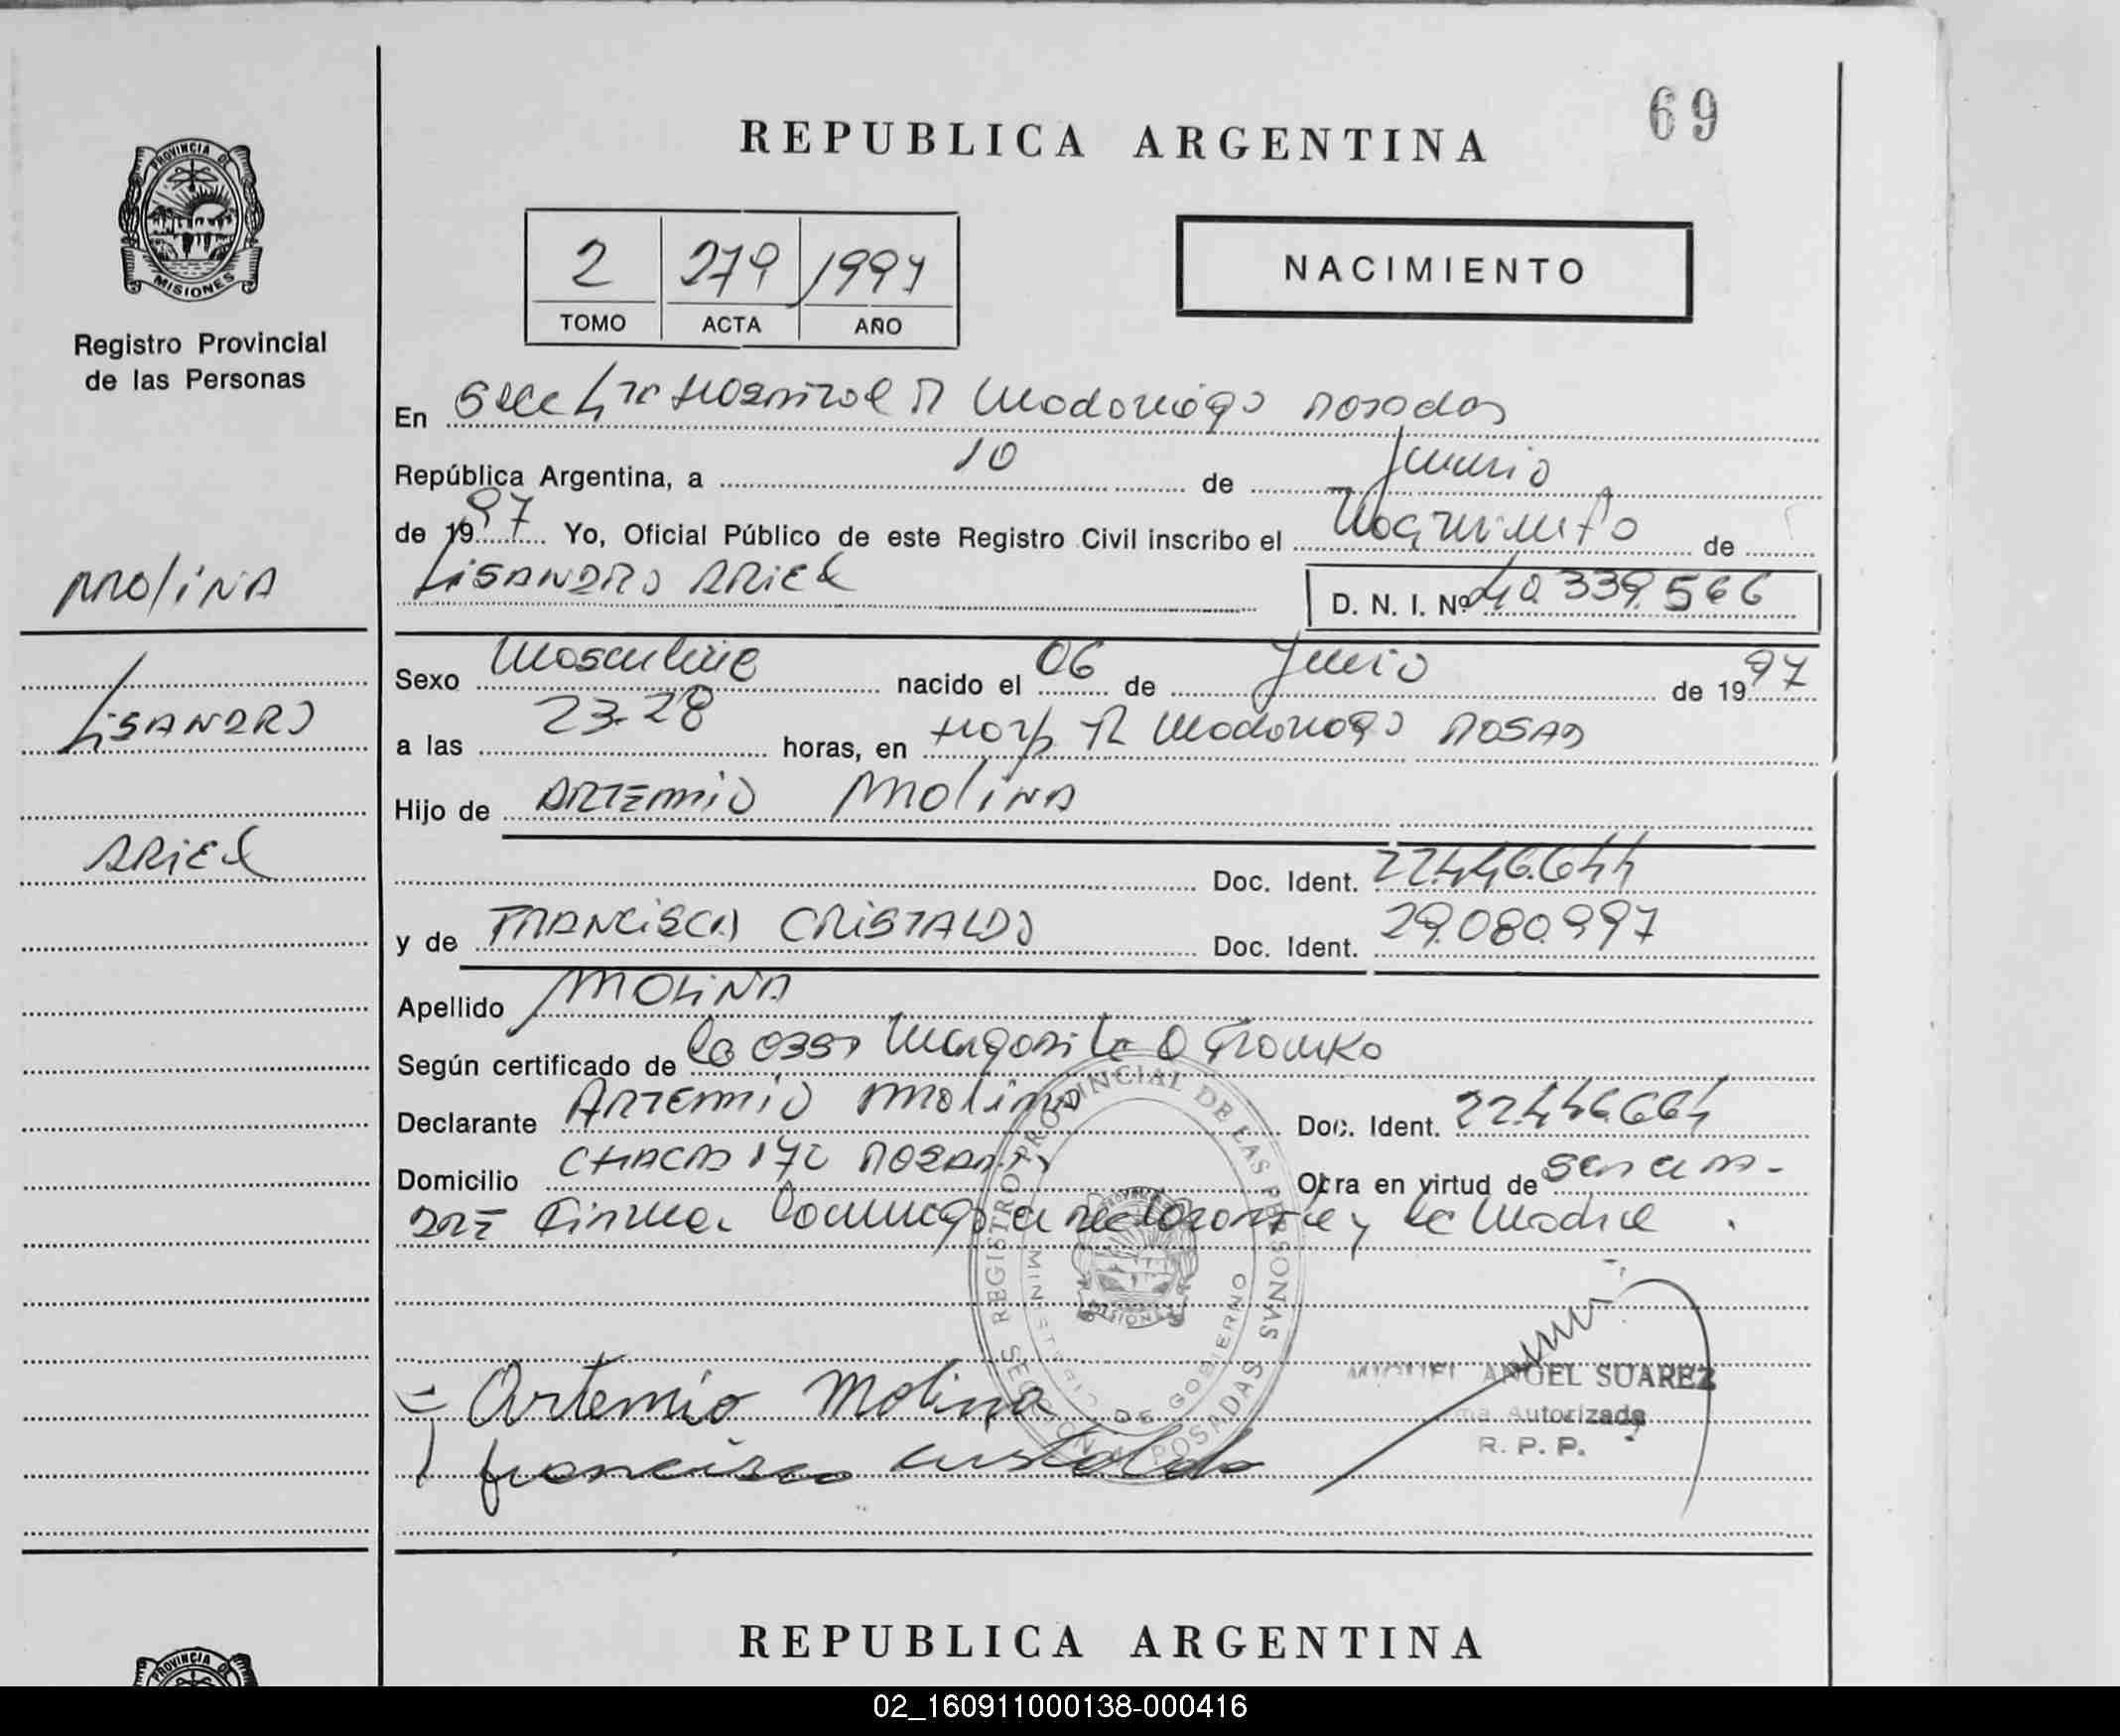 69
REPUBLICA ARGENTINA
PROVINCIA DE
MISIONES
Registro Provincial
de las Personas
2 279 1997
TOMO ACTA AÑO
NACIMIENTO
En Madariaga Posadas
República Argentina, a 10 de Junio
de 1997 Yo, Oficial Público de este Registro Civil inscribo el Nacimiento de
MOLINA
LISANDRO ARIEL D. N. I. Nº 40.339.566
Sexo Masculino nacido el 06 de Junio de 1997
LISANDRO
a las 23.28 horas, en Hosp R Madariaga POSAD
Hijo de ARTEMIO MOLINA
ARIEL
Doc. Ident. 22.446.644
y de FRANCISCA CRISTALDO Doc. Ident. 29.080.997
Apellido MOLINA
Según certificado de la Margarita
Declarante ARTEMIO MOLINA Doc. Ident.
Domicilio CHACRA Otra en virtud de ser el PA-
DRE Firma y la Madre.
REGISTRO PROVINCIAL DE LAS PERSONAS
MINISTERIO DE GOBIERNO
POSADAS
Artemio Molina
francisca cristaldo
MIGUEL ANGEL SUAREZ
Autorizada
R. P. P.
REPUBLICA ARGENTINA
PROVINCIA DE
02_160911000138-000416